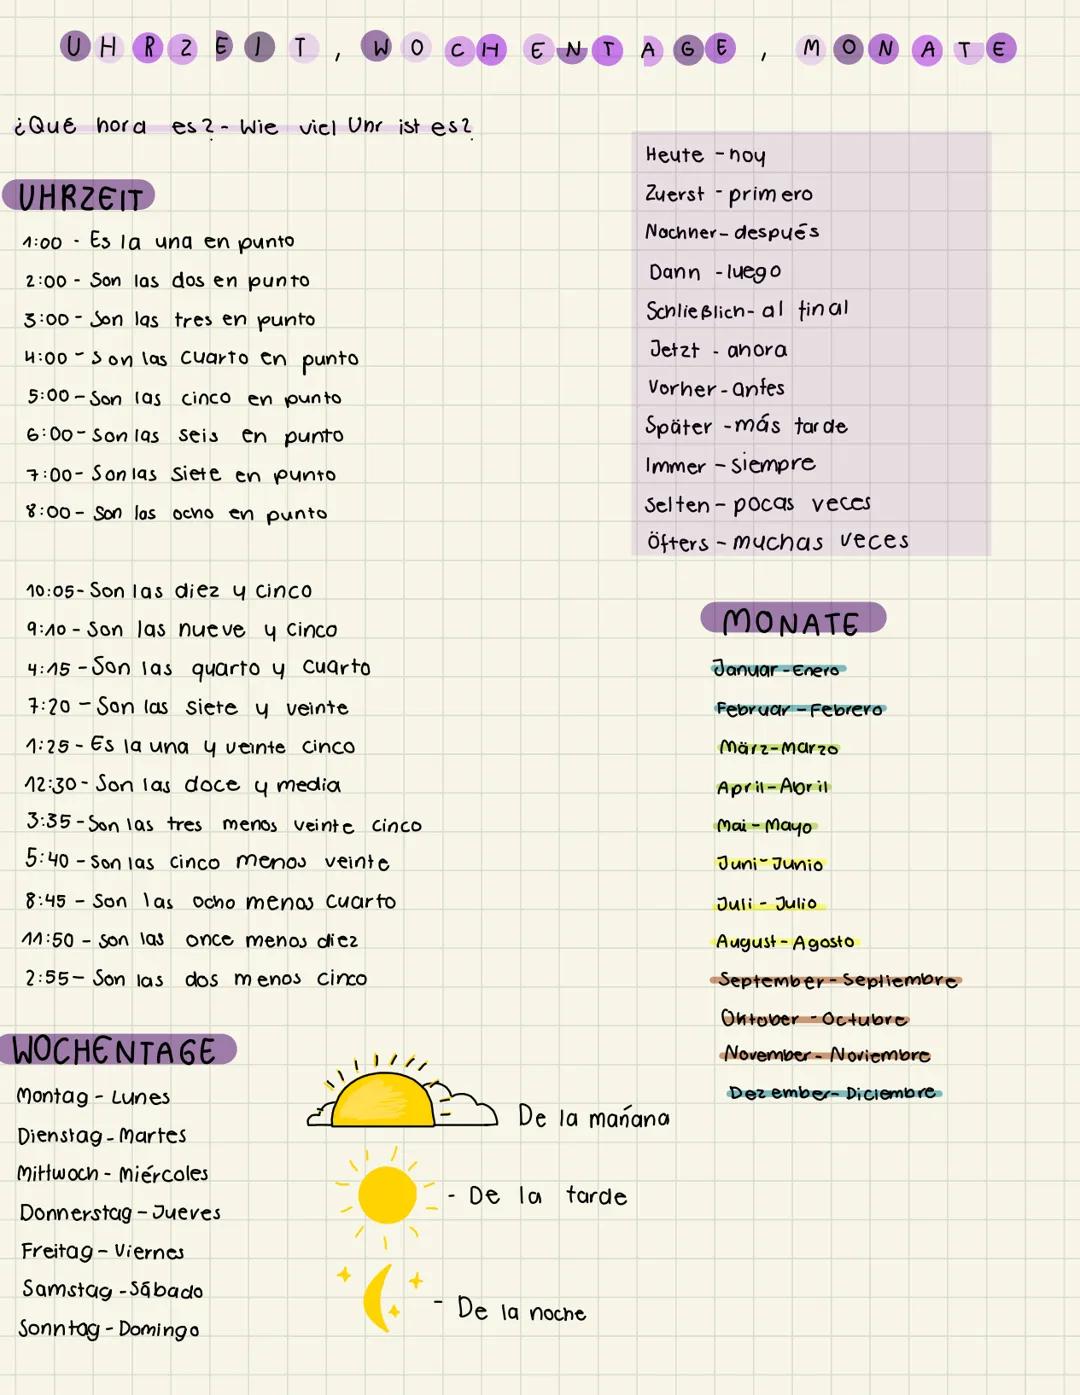 UHRZEIT, WOCHENTAGE, MONATE
¿Qué hora es? - Wie viel Uhr ist es?
UHRZEIT
1:00 - Es la una en punto
2:00 - Son las dos en punto
3:00 - Son las tres en punto
4:00 - Son las cuarto en punto
5:00 - Son las cinco en punto
6:00 - Son las seis en punto
7:00 - Son las siete en punto
8:00 - Son las ocho en punto
10:05 - Son las diez y cinco
9:10 - Son las nueve y cinco
4:15 - Son las quarto y cuarto
7:20 - Son las siete y veinte
1:25 - Es la una y veinte cinco
12:30 - Son las doce y media
3:35 - Son las tres menos veinte cinco
5:40 - Son las cinco menos veinte
8:45 - Son las ocho menos cuarto
11:50 - Son las once menos diez
2:55 - Son las dos menos cinco
WOCHENTAGE
Montag - Lunes
Dienstag - Martes
Mittwoch - Miércoles
Donnerstag - Jueves
Freitag - Viernes
Samstag - Sábado
Sonntag - Domingo
De la mañana
- De la tarde
- De la noche
Heute - hoy
Zuerst - primero
Nachher - después
Dann - luego
Schließlich - al final
Jetzt - ahora
Vorher - antes
Später - más tarde
Immer - siempre
Selten - pocas veces
Öfters - muchas veces
MONATE
Januar - Enero
Februar - Febrero
März - Marzo
April - Abril
Mai - Mayo
Juni - Junio
Juli - Julio
August - Agosto
September - Septiembre
Oktober - Octubre
November - Noviembre
Dezember - Diciembre